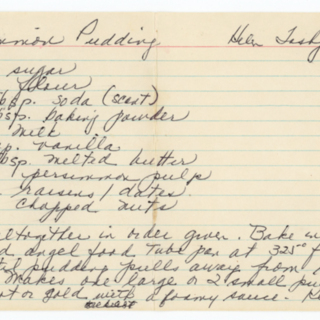 mmon Pudding Helen
sugar
flour
bsp. soda (scant)
sp. baking powder
milk
sp. vanilla
bsp. melted butter
persimmon pulp
. raisins / dates.
chopped nuts
altogether in order given. Bake
d angel food tube pan at 325° f
pudding pulls away from
Makes one large or 2 small pu
t or cold with a foamy sauce.